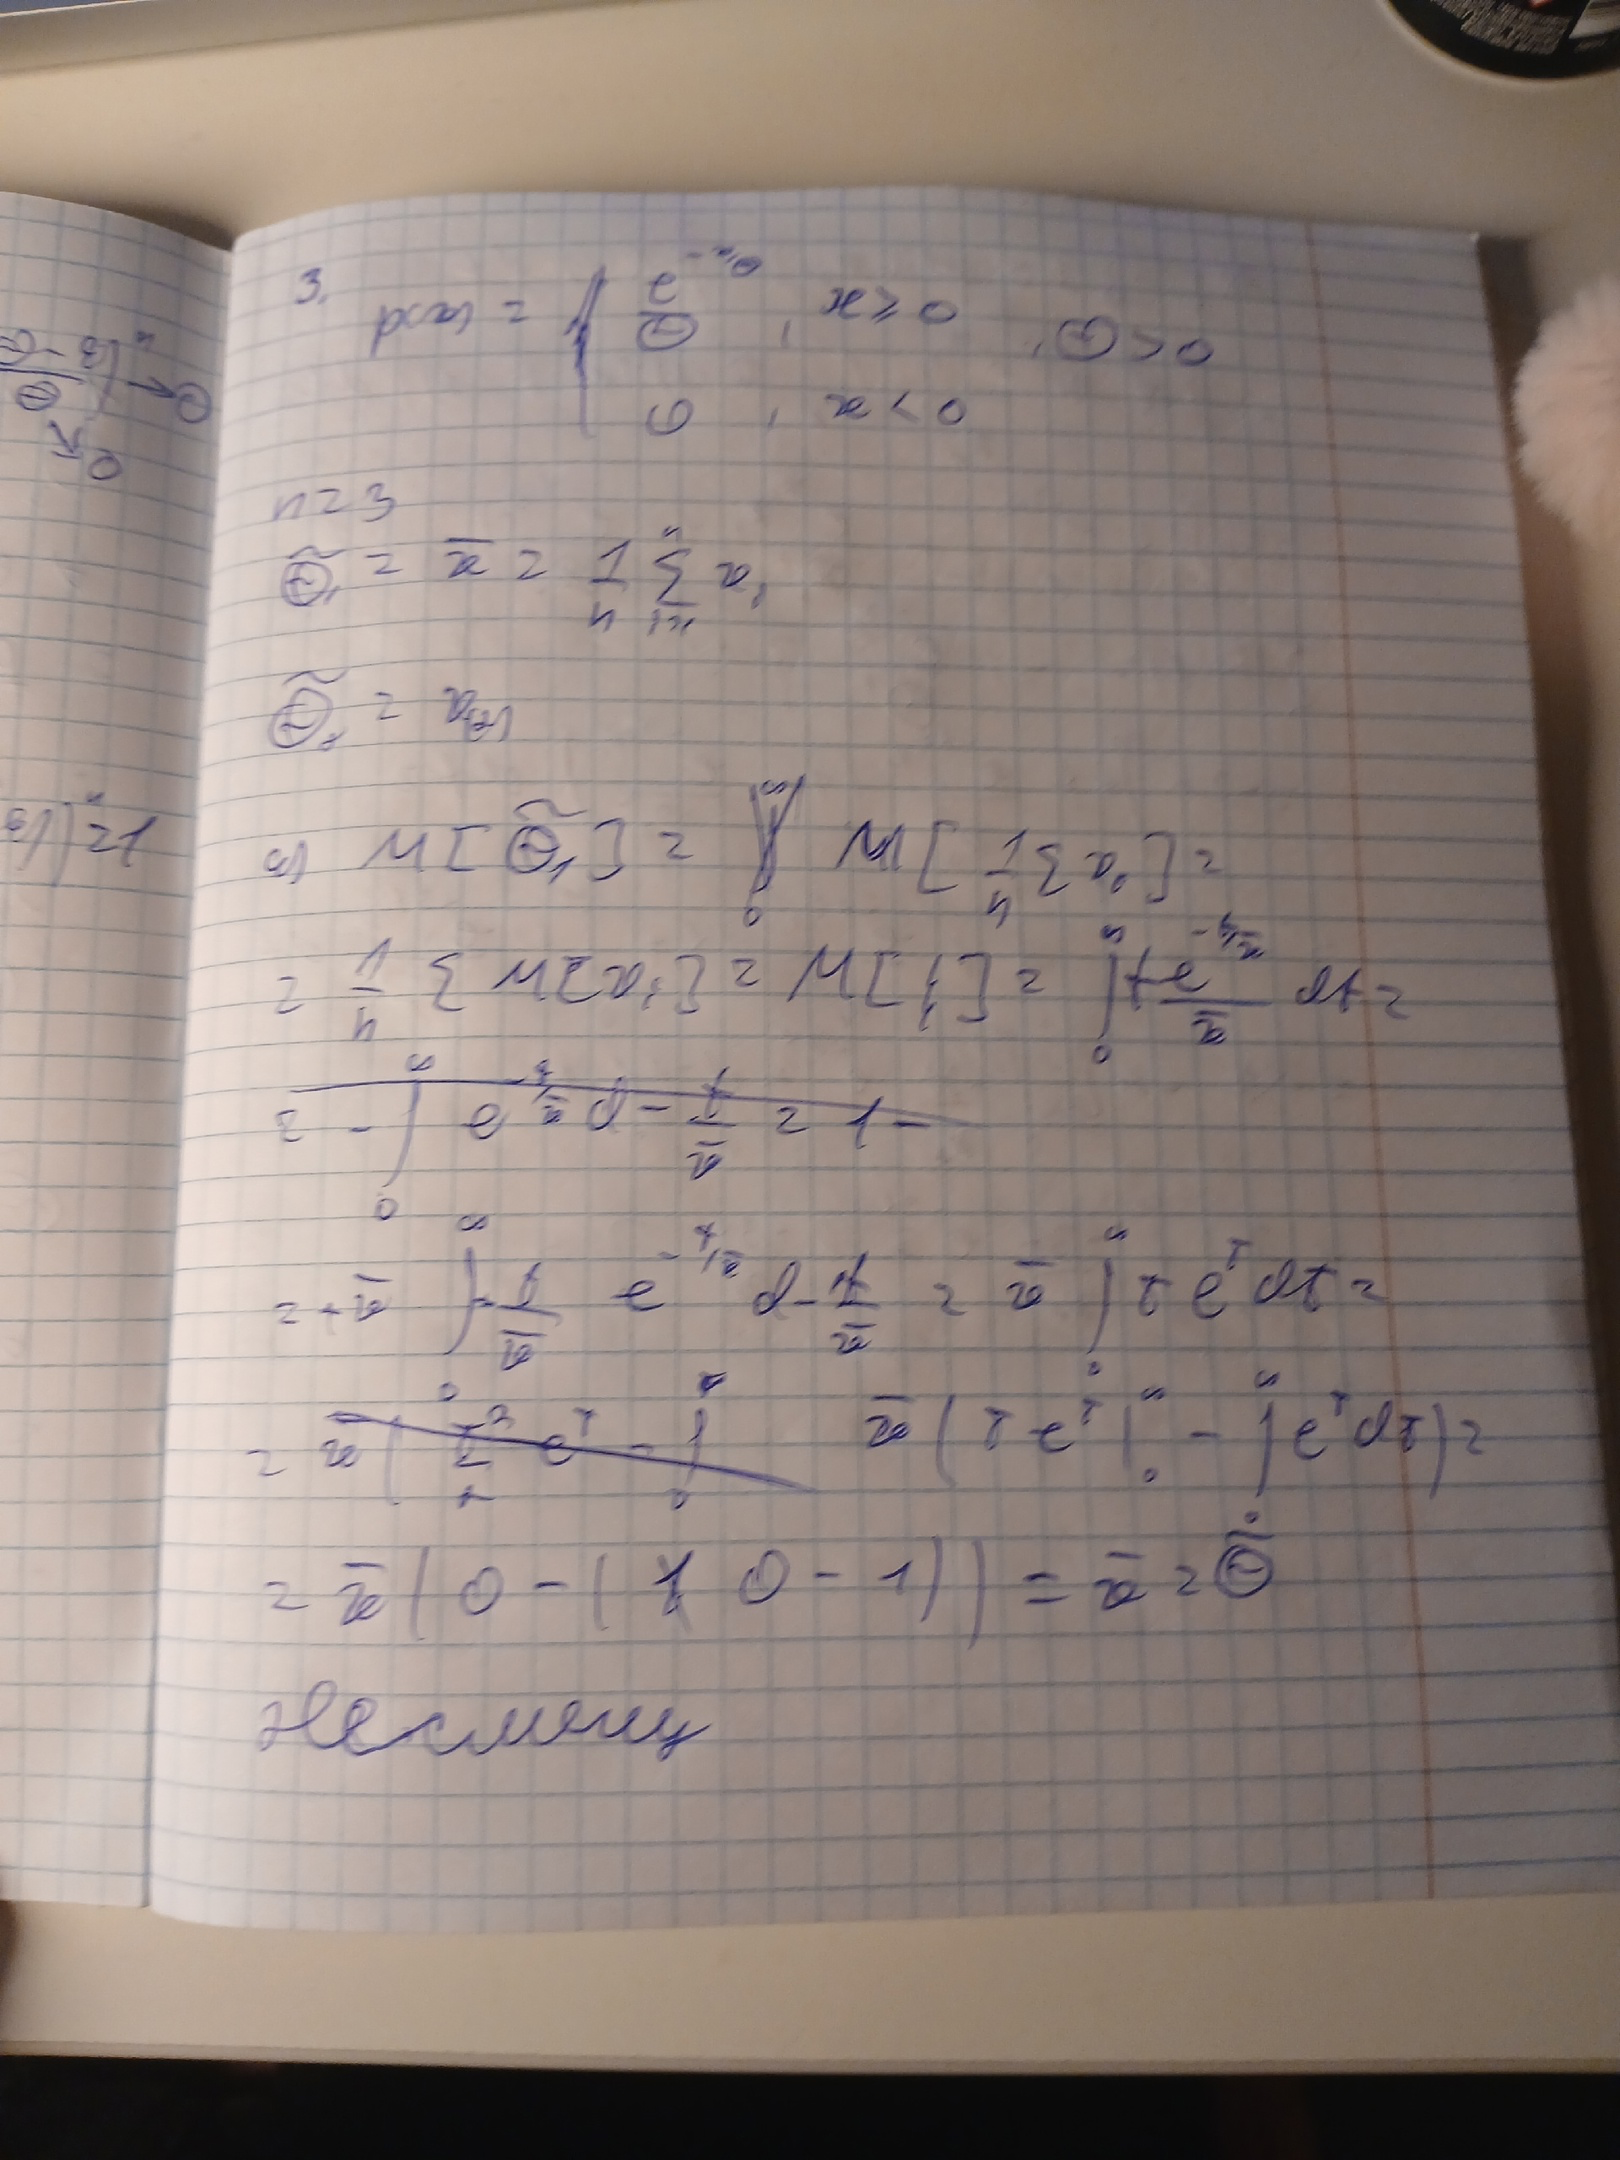 3. p(x) = { e^{-x/θ} / θ , x ≥ 0 , θ > 0
0 , x < 0
n = 3
θ̃₁ = x̄ = 1/n Σ_{i=1}^{n} xᵢ
θ̃₂ = x₍₂₎
a) M[θ̃₁] = M[1/n Σ xᵢ] =
= 1/n Σ M[xᵢ] = M[ξ] = ∫₀^∞ t e^{-t/x̄} / x̄ dt =
= - ∫₀^∞ e^{-t/x̄} d - t/x̄ = 1 -
= + x̄ ∫₀^∞ - t/x̄ e^{-t/x̄} d - t/x̄ = x̄ ∫₀^∞ τ e^τ dτ =
= x̄ ( τ²/2 e^τ - ∫₀ x̄ ( τ e^τ |₀^∞ - ∫₀^∞ e^τ dτ ) =
= x̄ ( 0 - ( 0 - 1 ) ) = x̄ = θ̃
Несмещ